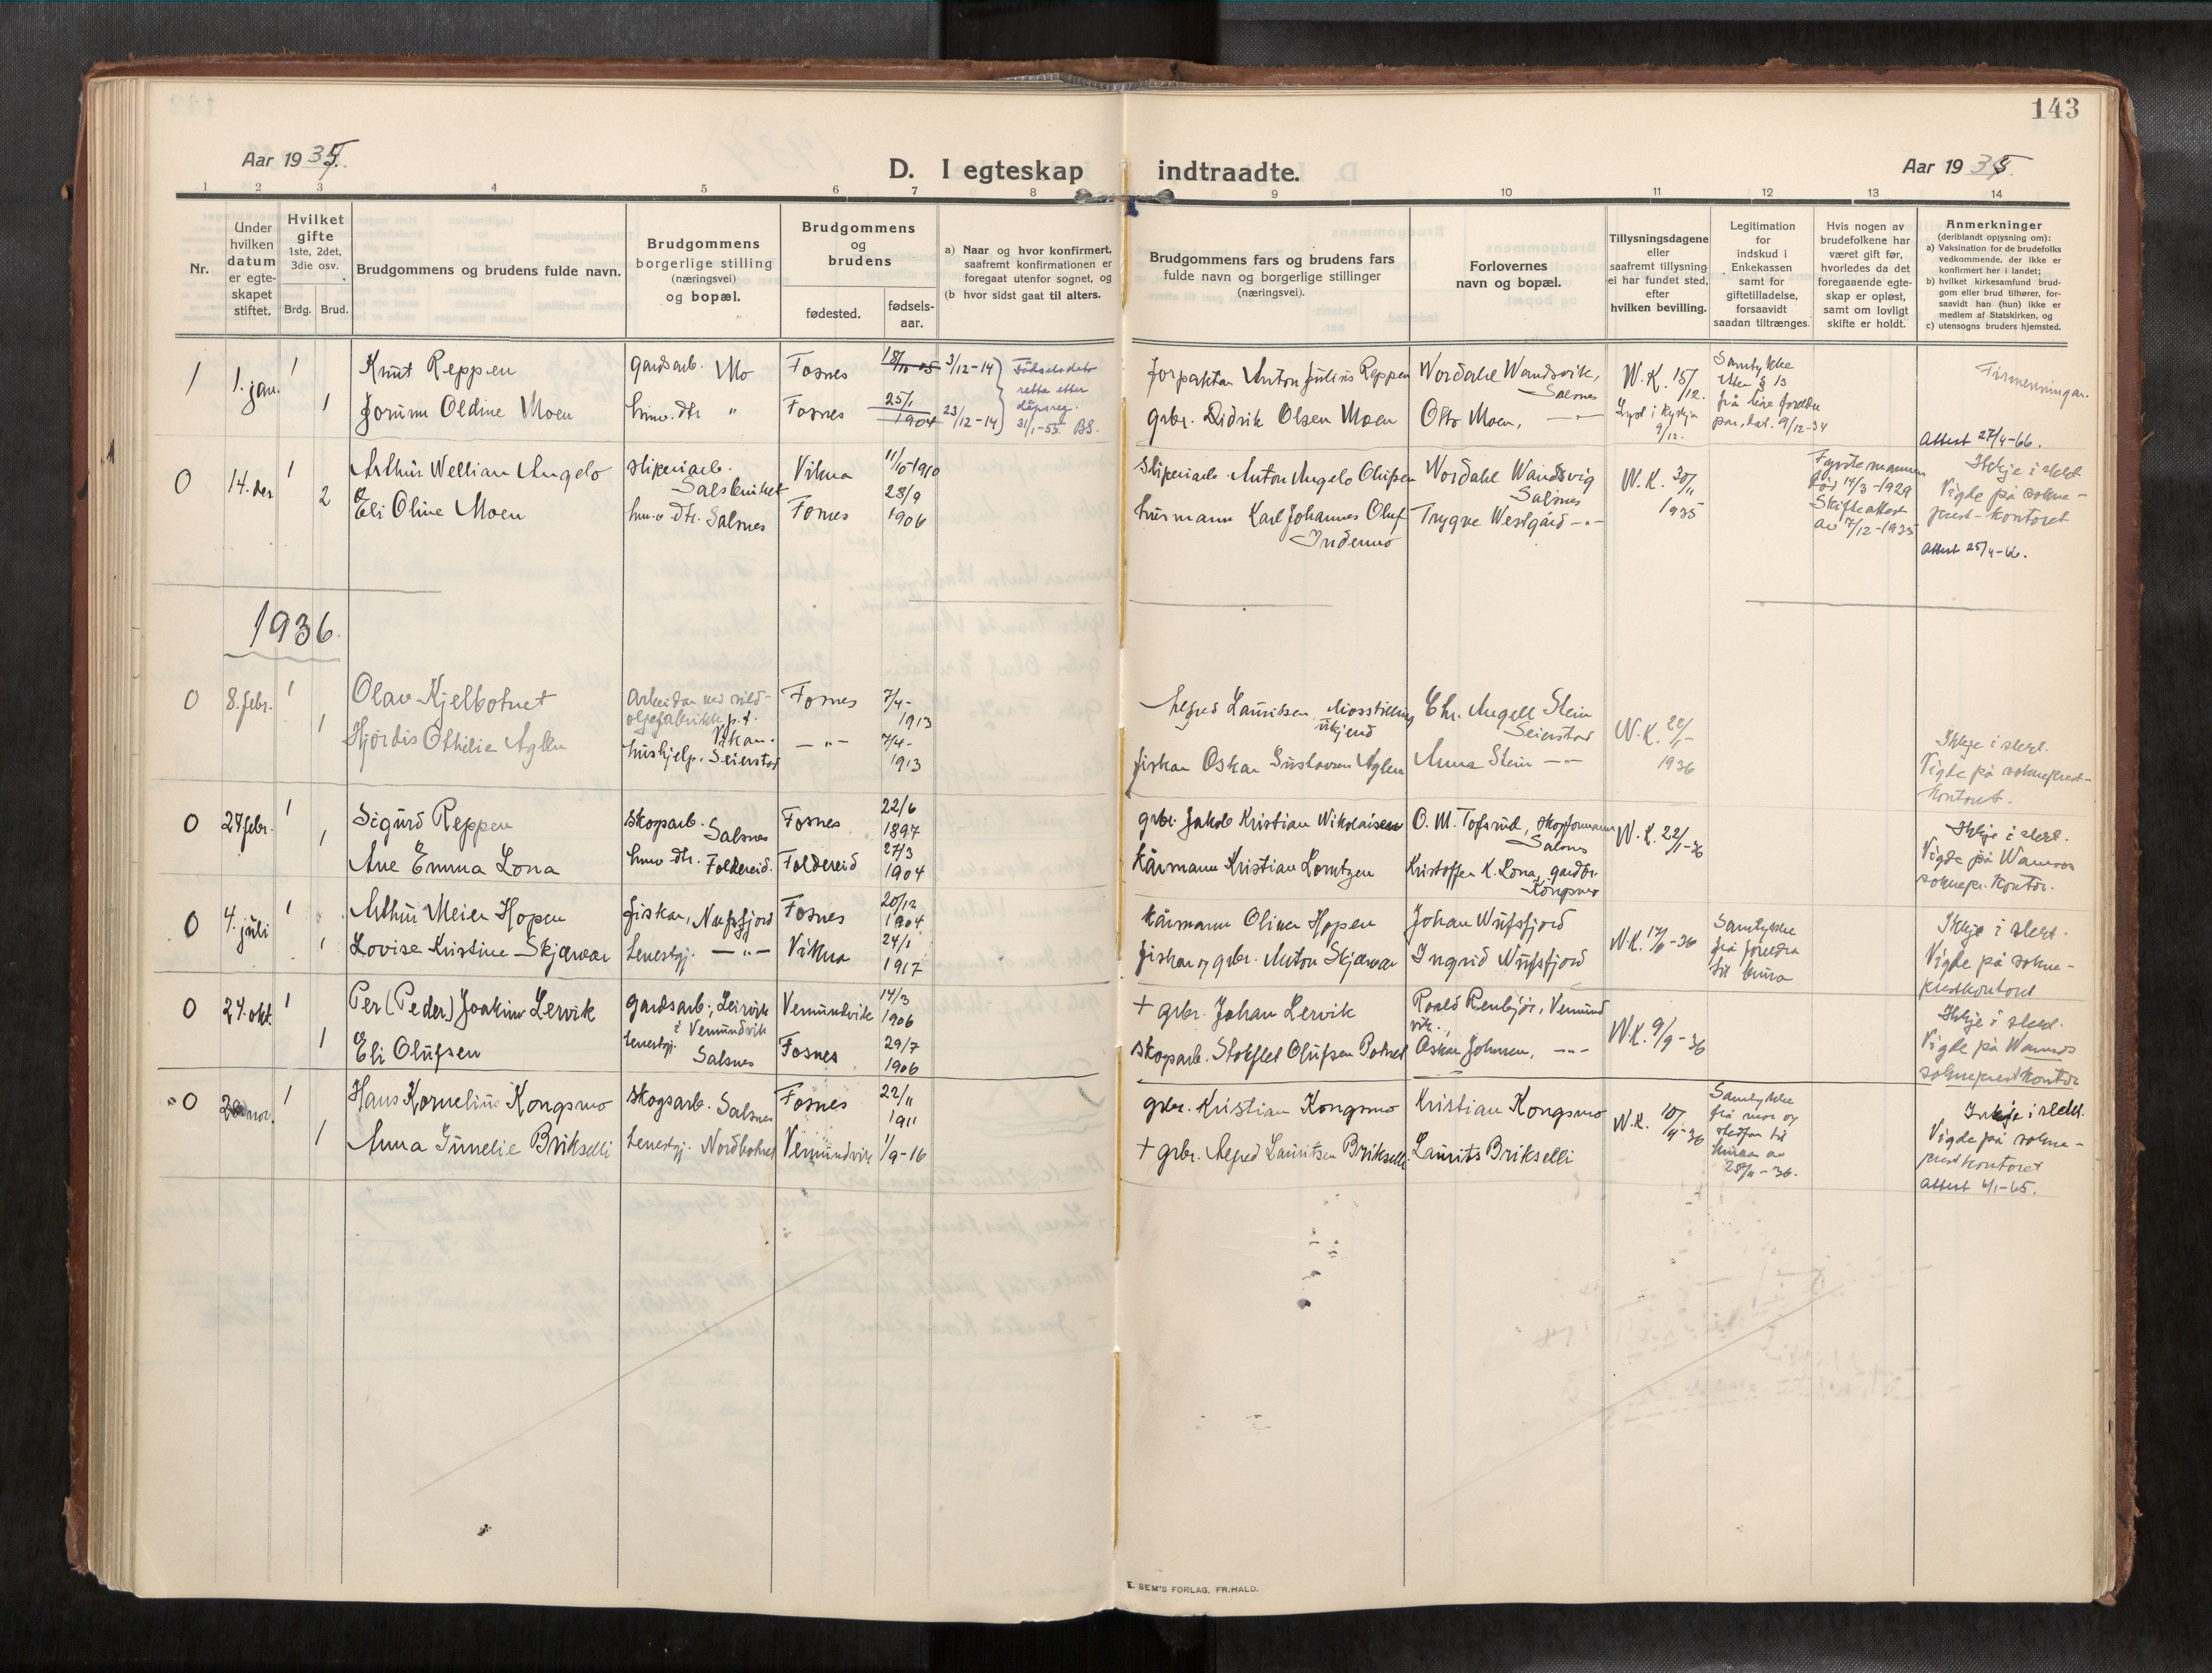 143
Aar 1935.
D. I egteskap indtraadte.
Aar 1935.
1 2 3 4 5 6 7 8 9 10 11 12 13 14
Nr.
Under hvilken datum er egte-skapet stiftet.
Hvilket gifte 1ste, 2det, 3die osv.
Brdg. Brud.
Brudgommens og brudens fulde navn.
Brudgommens borgerlige stilling (næringsvei) og bopæl.
Brudgommens og brudens
fødested.
fødsels-aar.
a) Naar og hvor konfirmert, saafremt konfirmationen er foregaat utenfor sognet, og
(b hvor sidst gaat til alters.
Brudgommens fars og brudens fars fulde navn og borgerlige stillinger (næringsvei).
Forlovernes navn og bopæl.
Tillysningsdagene eller saafremt tillysning ei har fundet sted, efter hvilken bevilling.
Legitimation for indskud i Enkekassen samt for giftetilladelse, forsaavidt saadan tiltrænges.
Hvis nogen av brudefolkene har været gift før, hvorledes da det foregaaende egte-skap er opløst, samt om lovligt skifte er holdt.
Anmerkninger (deriblandt opjysning om):
a) Vaksination for de brudefolks vedkommende, der ikke er konfirmert her i landet;
b) hvilket kirkesamfund brud-gom eller brud tilhører, for-saavidt han (hun) ikke er medlem af Statskirken, og
c) utensogns bruders hjemsted.
1 1. jan. 1 Knut Reppen gardsarb. Mo Fosnes 3/12-14 Fødselsdato retta etter dåpsreg. 31/1-55. BS.
forpaktar Anton Julius Reppen Nordahl Wandsvik, Salsnes W.K. 15/12. Samtykke etter § 13 frå
1 Jorunn Oldine Moen heimv. dtr. " Fosnes 25/1 1904 23/12-14
grbr. Didrik Olsen Moen Otto Moen, —"— Lyst i kyrkja 9/12. 9/12-34
Attest 27/4-66.
0 14. des 1 Arthur Wellian Angelo sliperiarb. Salsbruket Vikna 11/10-1910
sliperiarb. Anton Angelo Olufsen Nordahl Wandsvig Salsnes W.K. 30/11 1935
2 Eli Oline Moen heimv. dtr. Salsnes Fosnes 28/9 1906
husmann Karl Johannes Oluf Indermo Trygve Westgård —"—
Fyrste mannen død 14/3-1929 Skifteattest av 7/12-1935
Ikkje i slekt Vigde på sokne-prest-kontoret
Attest 25/4-66.
1936.
0 8. febr. 1 Olav Kjelbotnet Arbeidar ved sild-oljefabrikk p.t. Vikan. Fosnes 7/4- 1913
Alfred Lauritsen Livsstilling ukjend Chr. Angell Stein Seierstad W.K. 22/1- 1936
1 Hjördis Othilie Aglen hushjelp. Seierstad —"— 7/4- 1913
fiskar Oskar Gustavsen Aglen Anna Stein —"—
Ikkje i slekt. Vigde på sokneprest-kontoret.
0 27 febr. 1 Sigurd Reppen skogsarb. Salsnes Fosnes 22/6 1897
grbr. Jakob Kristian Nikolaisen O. M. Tofsrud, skogformann Salsnes W.K. 22/1-36
1 Ane Emma Lona heimv. dtr. Foldereid. Foldereid 27/3 1904
kårmann Kristian Lorntzen Kristoffer K. Lona, gardbr. Kongsmo
Ikkje i slekt. Vigde på Namsos soknepr. kontor.
0 4. juli 1 Arthur Meier Hopen fiskar, Nufsfjord Fosnes 20/12 1904
kårmann Oliver Hopen Johan Nufsfjord W.K. 17/6-36 Samtykke frå foreldra til brura
1 Lovise Kristine Skjærvær tenestgj. —"— Vikna 24/1 1917
fiskar og grbr. Anton Skjærvær Ingrid Nufsfjord
Ikkje i slekt. Vigde på sokne-prestkontoret
0 24. okt. 1 Per (Peder) Joakim Lervik gardsarb; Leirvik i Vemundvik Vemundvik 14/3 1906
+ grbr. Johan Lervik Roald Renbjör, Vemundvik. W.K. 9/9-36
1 Eli Olufsen tenestgj. Salsnes Fosnes 29/7 1906
skogsarb. Stokflet Olufsen Botnet Oskar Johnsen, —"—
Ikkje i slekt. Vigde på Namsos sokneprestkontor
0 nov. 1 Hans Kornelius Kongsmo skogsarb. Salsnes Fosnes 22/11 1911
grbr. Kristian Kongsmo Kristian Kongsmo W.K. Samtykke frå mor og stedfar til brura av 28/11-36.
1 Anna Gunelie Brikselli tenestgj. Nordbotnet Vemundvik 1/9-16
+ grbr. Alfred Lauritsen Brikselli. Laurits Brikselli
Ikkje i slekt. Vigde på sokne-prestkontoret
Attest 4/1-65.
E. SEM'S FORLAG, FR.HALD.